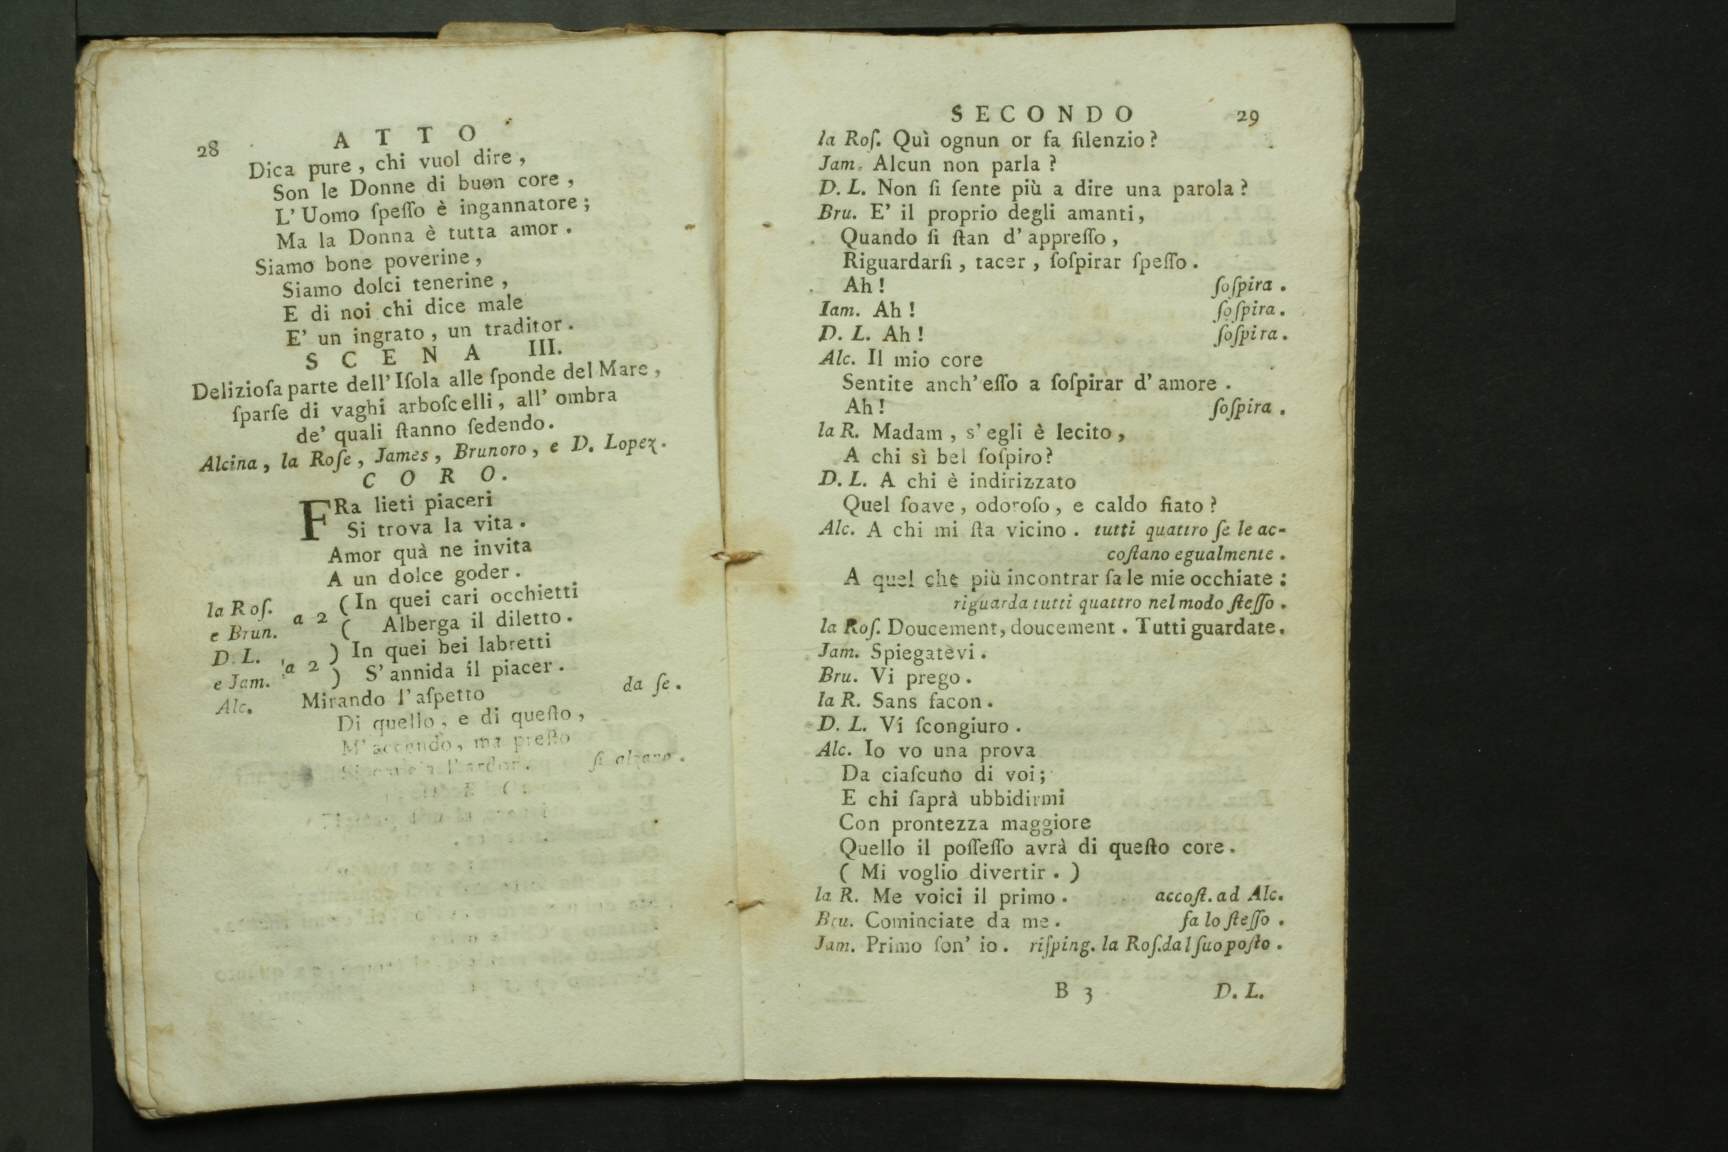 28 ATTO
Dica pure, chi vuol dire,
Son le Donne di buon core,
L'Uomo ſpeſſo è ingannatore;
Ma la Donna è tutta amor.
Siamo bone poverine,
Siamo dolci tenerine,
E di noi chi dice male
E' un ingrato, un traditor.
SCENA III.
Delizioſa parte dell'Iſola alle ſponde del Mare,
ſparſe di vaghi arboſcelli, all'ombra
de' quali ſtanno ſedendo.
Alcina, la Roſe, James, Brunoro, e D. Lopez.
CORO.
FRa lieti piaceri
Si trova la vita.
Amor quà ne invita
A un dolce goder.
la Roſ. (In quei cari occhietti
e Brun. a 2 ( Alberga il diletto.
D. L. ) In quei bei labretti
e Jam. a 2 ) S'annida il piacer.
Alc. Mirando l'aſpetto da ſe.
Di quello, e di queſto,
M'accendo, ma preſto
l'ardor. ſi alzano.
SECONDO 29
la Roſ. Quì ognun or fa ſilenzio?
Jam. Alcun non parla?
D. L. Non ſi ſente più a dire una parola?
Bru. E' il proprio degli amanti,
Quando ſi ſtan d'appreſſo,
Riguardarſi, tacer, ſoſpirar ſpeſſo.
Ah! ſoſpira.
Iam. Ah! ſoſpira.
D. L. Ah! ſoſpira.
Alc. Il mio core
Sentite anch'eſſo a ſoſpirar d'amore.
Ah! ſoſpira.
la R. Madam, s'egli è lecito,
A chi sì bel ſoſpiro?
D. L. A chi è indirizzato
Quel ſoave, odoroſo, e caldo fiato?
Alc. A chi mi ſta vicino. tutti quattro ſe le ac-
coſtano egualmente.
A quel che più incontrar ſa le mie occhiate:
riguarda tutti quattro nel modo ſteſſo.
la Roſ. Doucement, doucement. Tutti guardate.
Jam. Spiegatevi.
Bru. Vi prego.
la R. Sans facon.
D. L. Vi ſcongiuro.
Alc. Io vo una prova
Da ciaſcuno di voi;
E chi ſaprà ubbidirmi
Con prontezza maggiore
Quello il poſſeſſo avrà di queſto core.
( Mi voglio divertir. )
la R. Me voici il primo. accoſt. ad Alc.
Bru. Cominciate da me. fa lo ſteſſo.
Jam. Primo ſon' io. riſping. la Roſ. dal ſuo poſto.
B 3 D. L.